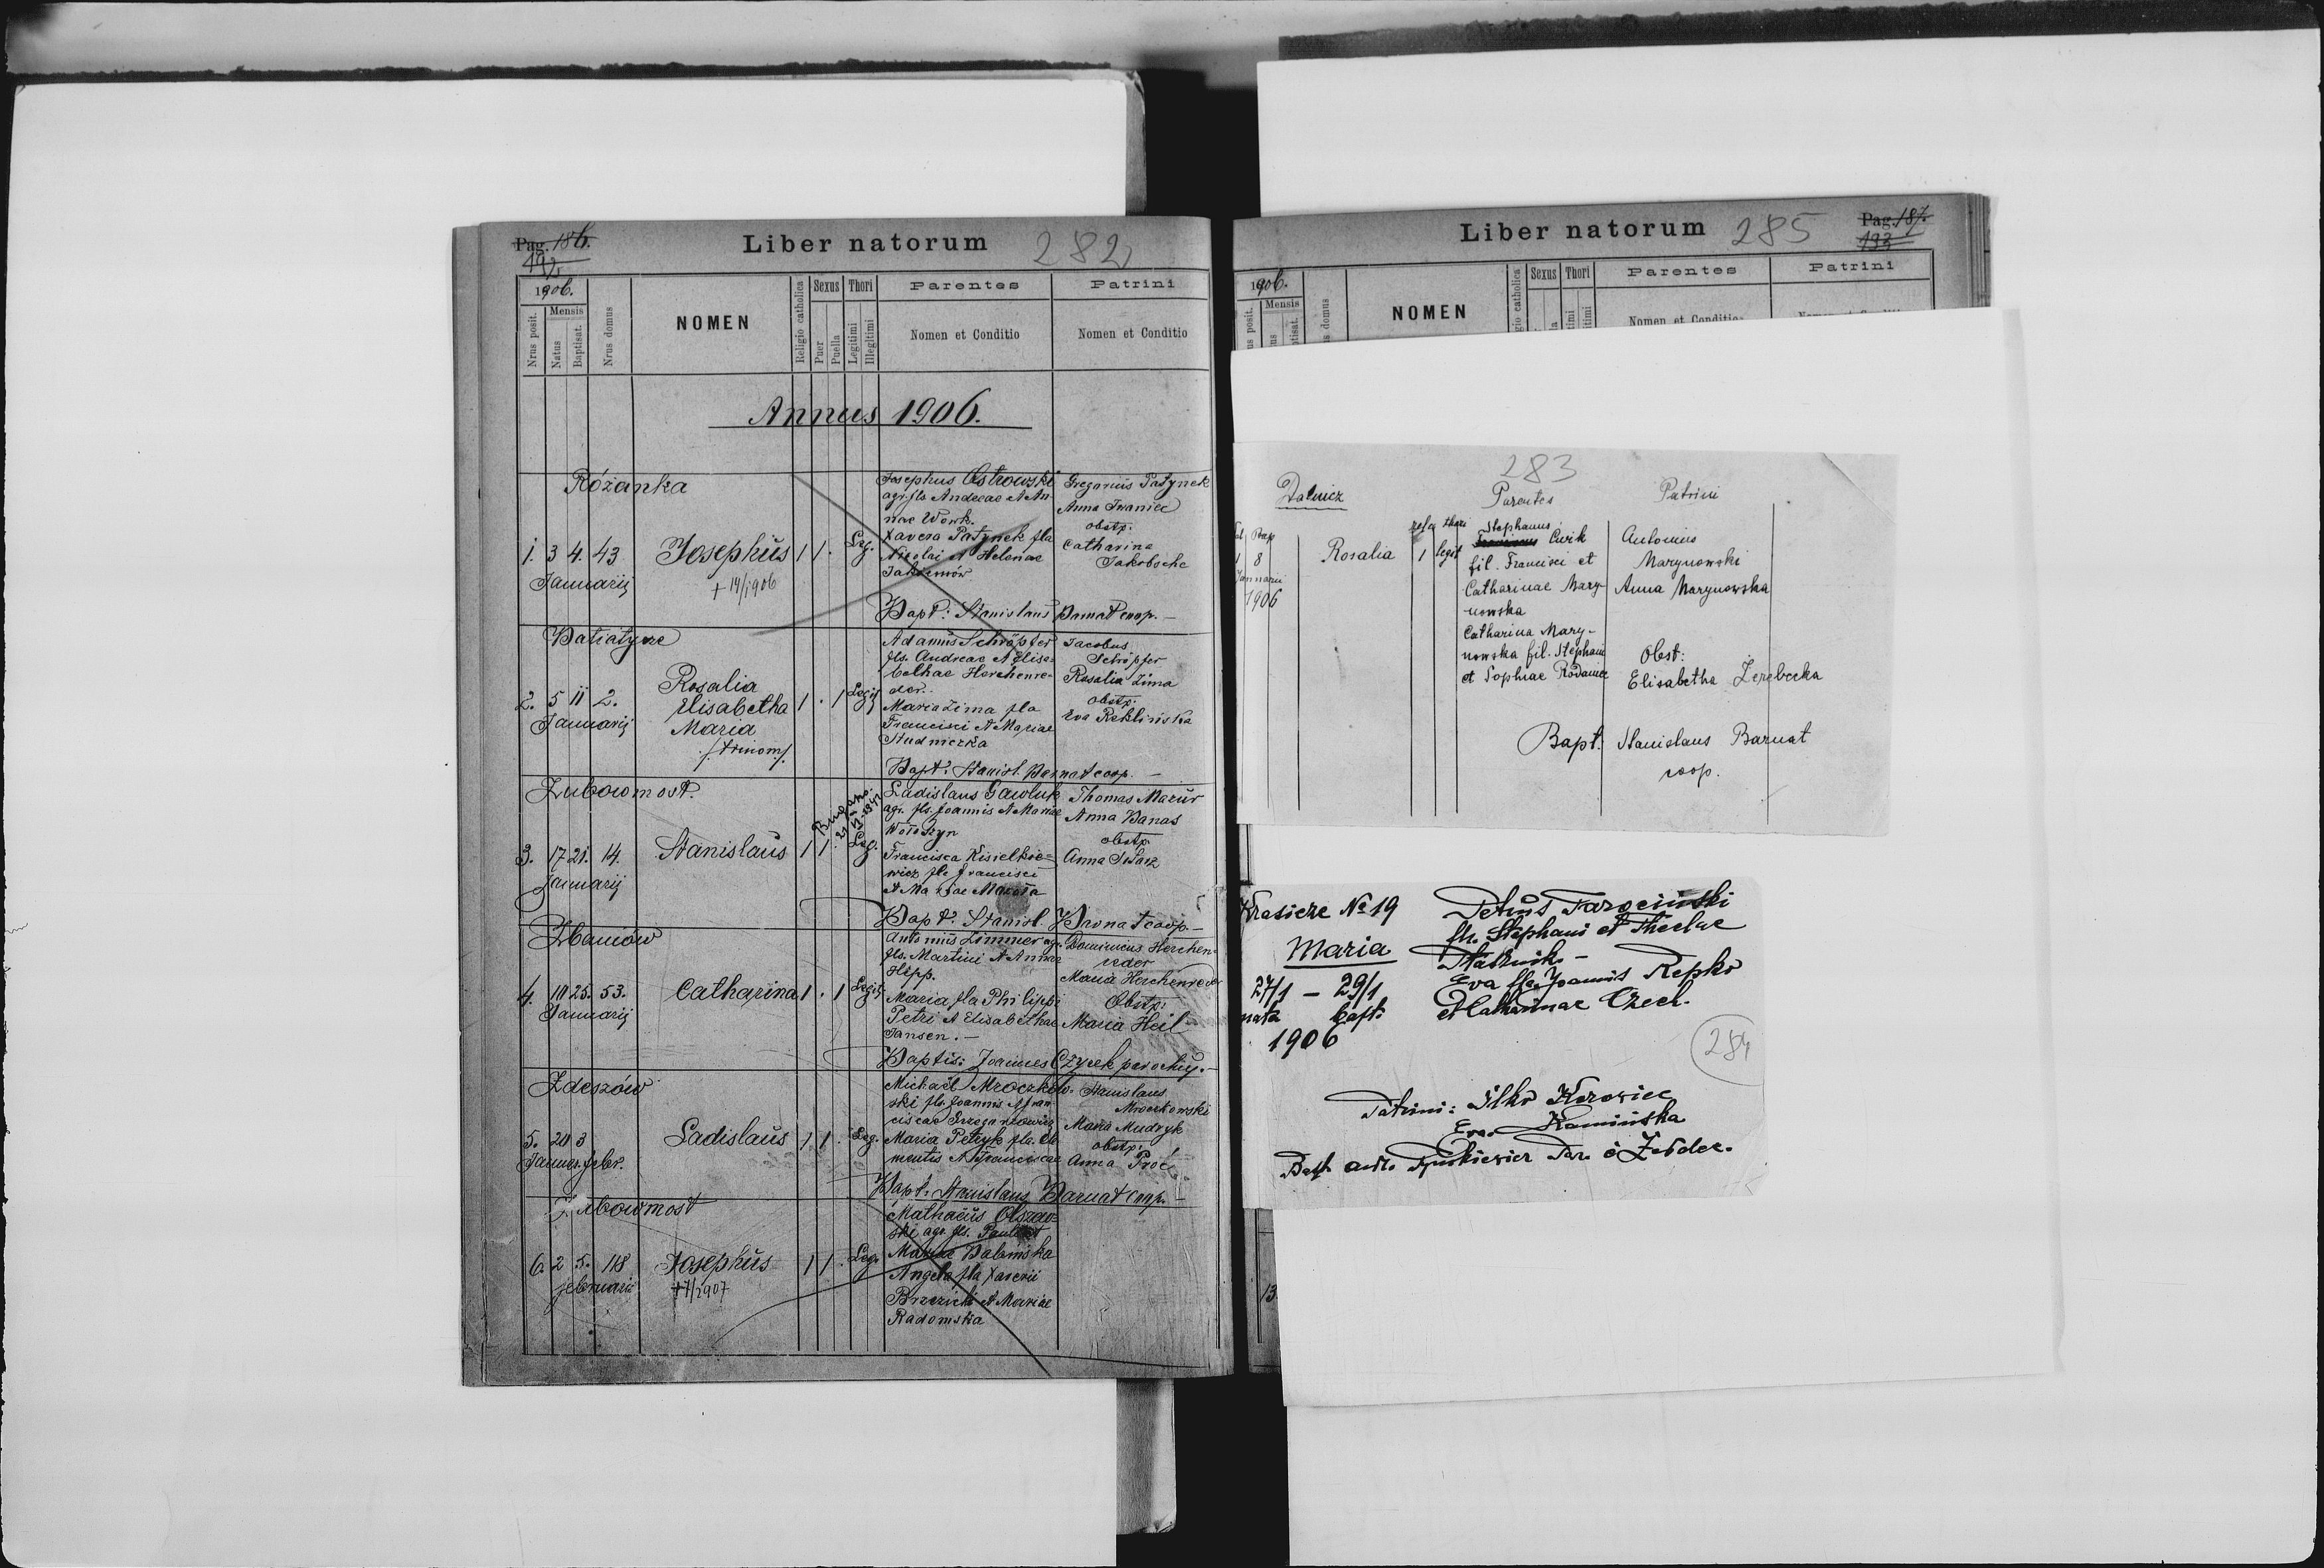 Pag. 186.
192
Liber natorum
282
1906.
Nrus posit.
Mensis
Natus
Baptisat.
Nrus domus
NOMEN
Religio catholica
Sexus
Puer
Puella
Thori
Legitimi
Illegitimi
Parentes
Nomen et Conditio
Patrini
Nomen et Conditio
Annus 1906.
Różanka
1. 3 4. 43
Januarij
Josephus
+ 14/1906
1 1 . Leg.
Josephus Ostrowski
agr. fls Andreae et An-
nae Wowk.
Xavera Patynek fla
Nicolai et Helenae
Jakimów
Gregorius Patynek
Anna Iwaniec
obstp.
Catharina
Jakobsche
Bapt: Stanislaus Barnat coop. —
Batiatyne
2. 5 11 2.
Januarij
Rosalia
Elisabetha
Maria
/trinom/.
1 . 1 Legit
Adamus Schröpfer
fls. Andreae et Elisa-
bethae Herchenre-
der.
Maria Zima fla
Francisci et Mariae
Studniczka
Jacobus
Schröpfer
Rosalia Zima
obstp:
Eva Reklinska
Bapt: Stanisl. Barnat coop. —
Zubowmost.
3. 17 21. 14.
Januarij
Stanislaus
1 1 . Leg.
Ladislaus Gawluk
agr. fls. Joannis et Mariae
Wołoszyn
Francisca Kisielkie-
wicz fla Francisci
et Mariae
Thomas Mazur
Anna Banas
obstp.
Anna
Bapt: Stanisl. Barnat coop. —
4. 10 25. 53.
Januarij
Catharina
1 . 1 Legit
Antonius Zimmer agr.
fls. Martini et Annae
Hipp.
Maria fla Philippi
Petri et Elisabethae
Jansen. —
Dominicus Herchen-
reder
Maria Herchenreder
Obstp:
Maria Heil
Baptis: Joannes Czyrek parochus. —
Zdeszów
5. 20 3
Januar. febr.
Ladislaus
1 1 . Leg.
Michaël Mroczkow-
ski fls. Joannis et Fran-
ciscae
Maria Petryk fla. Cle-
mentis et Franciscae
Stanislaus
Mroczkowski
Maria Mudryk
obstp:
Anna Proć
Bapt. Stanislaus Barnat coop. —
Zubowmost
6. 2 5. 118
februarii
Josephus
+7/1907
1 1 . Leg.
Mathaeus Olszew-
ski agr. fls. Pauli et
Mariae Babinska
Angela fla Xaverii
Brzezicki et Mariae
Radomska
Liber natorum
285
Pag. 187.
193
1906.
Mensis
NOMEN
Sexus
Thori
Parentes
Nomen et Conditio
Patrini
283
Dalnicz
Parentes
Patrini
Bap
1 8
Januarii
1906
Rosalia
1 legit
Stephanus
Cwik
fil. Francisci et
Catharinae Mary-
nowska
Catharina Mary-
nowska fil. Stephani
et Sophiae Rodaniec
Antonius
Marynowski
Anna Marynowska
Obst:
Elisabetha Zerebecka
Bapt. Stanislaus Barnat
coop.
Krasicze No 19
Maria
27/1 — 29/1
nata bapt.
1906
Petrus Tarocinski
fls. Stephani et Theclae
Eva fla Joannis Repko
et Catharinae Czech.
284
Patrini: Ilko Korowiec
Eva Kaminska
13